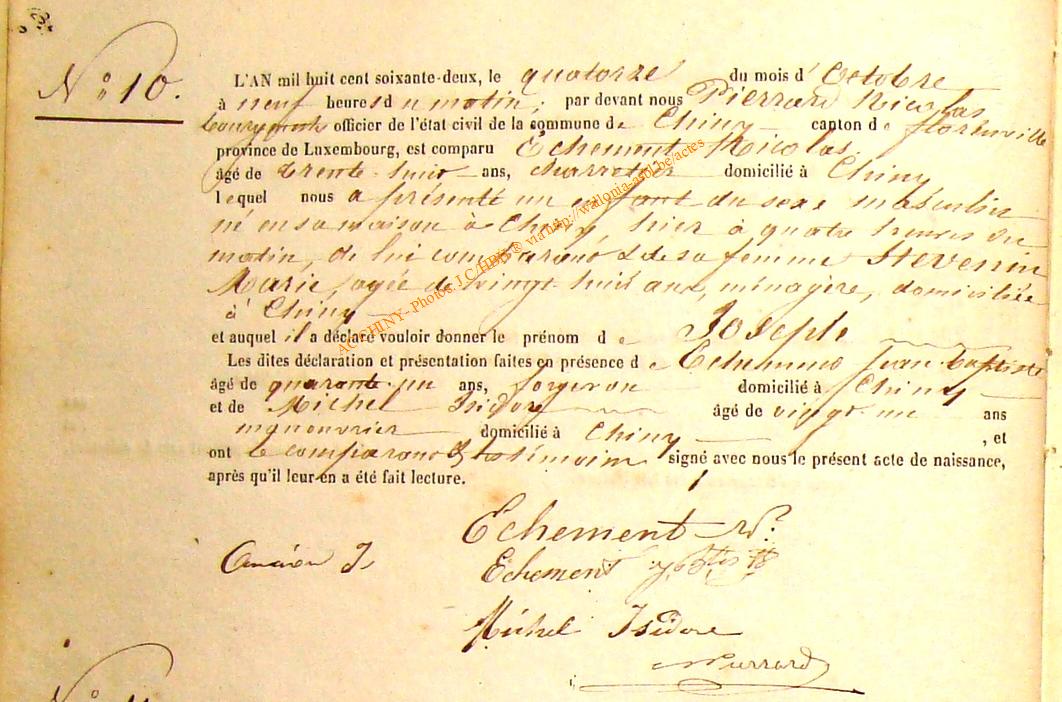 N° 10.
L'AN mil huit cent soixante-deux, le quatorze du mois d'Octobre
à neuf heures du matin, par devant nous Pierrard Nicolas
bourgmestre officier de l'état civil de la commune de Chiny canton de florenville
province de Luxembourg, est comparu Echement Nicolas
âgé de trente-huit ans, charretier domicilié à Chiny
lequel nous a présenté un enfant du sexe masculin
né en sa maison à Chiny, hier à quatre heures du
matin, de lui comparant & de sa femme Stevenin
Marie, agée de vingt huit ans, ménagère, domiciliée
à Chiny
et auquel il a déclaré vouloir donner le prénom de Joseph
Les dites déclaration et présentation faites en présence de Echement Jean-baptiste
âgé de quarante-un ans, forgeron domicilié à Chiny
et de Michel Isidore âgé de vingt un ans
manouvrier domicilié à Chiny, et
ont le comparant & les témoins signé avec nous le présent acte de naissance,
après qu'il leur en a été fait lecture.
Echement N.
Echement J Btis
Michel Isidore
Pierrard
AC CHINY- Photos J.C/HDH ® via http://wallonia-asbl.be/actes
N°